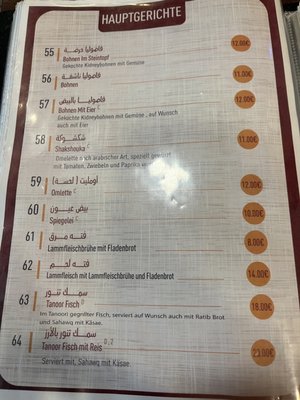 HAUPTGERICHTE
55 فاصوليا حرضة
Bohnen Im Steintopf 12.00€
Gekochte Kidneybohnen mit Gemüse
56 فاصوليا ناشفة
Bohnen 11.00€
Gekochte Kidneybohnen mit Gemüse
57 فاصوليا بالبيض
Bohnen Mit Eier C 12.00€
Gekochte Kidneybohnen mit Gemüse , auf Wunsch
auch mit Eier
58 شكشوكة
Shakshouka C 11.00€
Omelette nach arabischer Art, speziell gewürzt
mit Tomaten, Zwiebeln und Paprika
59 أومليت ( لخسة)
Omlette C 12.00€
60 بيض عيون
Spiegelei C 10.00€
61 فته مرق
Lammfleischbrühe mit Fladenbrot 8.00€
62 فته لحم
Lammfleisch mit Lammfleischbrühe und Fladenbrot 14.00€
63 سمك تنور
Tanoor Fisch D 18.00€
Im Tanoori gegrillter Fisch, serviert auf Wunsch auch mit Ratib Brot
und Sahawq mit Käsae.
64 سمك تنور بالأرز
Tanoor Fisch mit Reis D, 2 23.00€
Serviert mit, Sahawq mit Käsae.